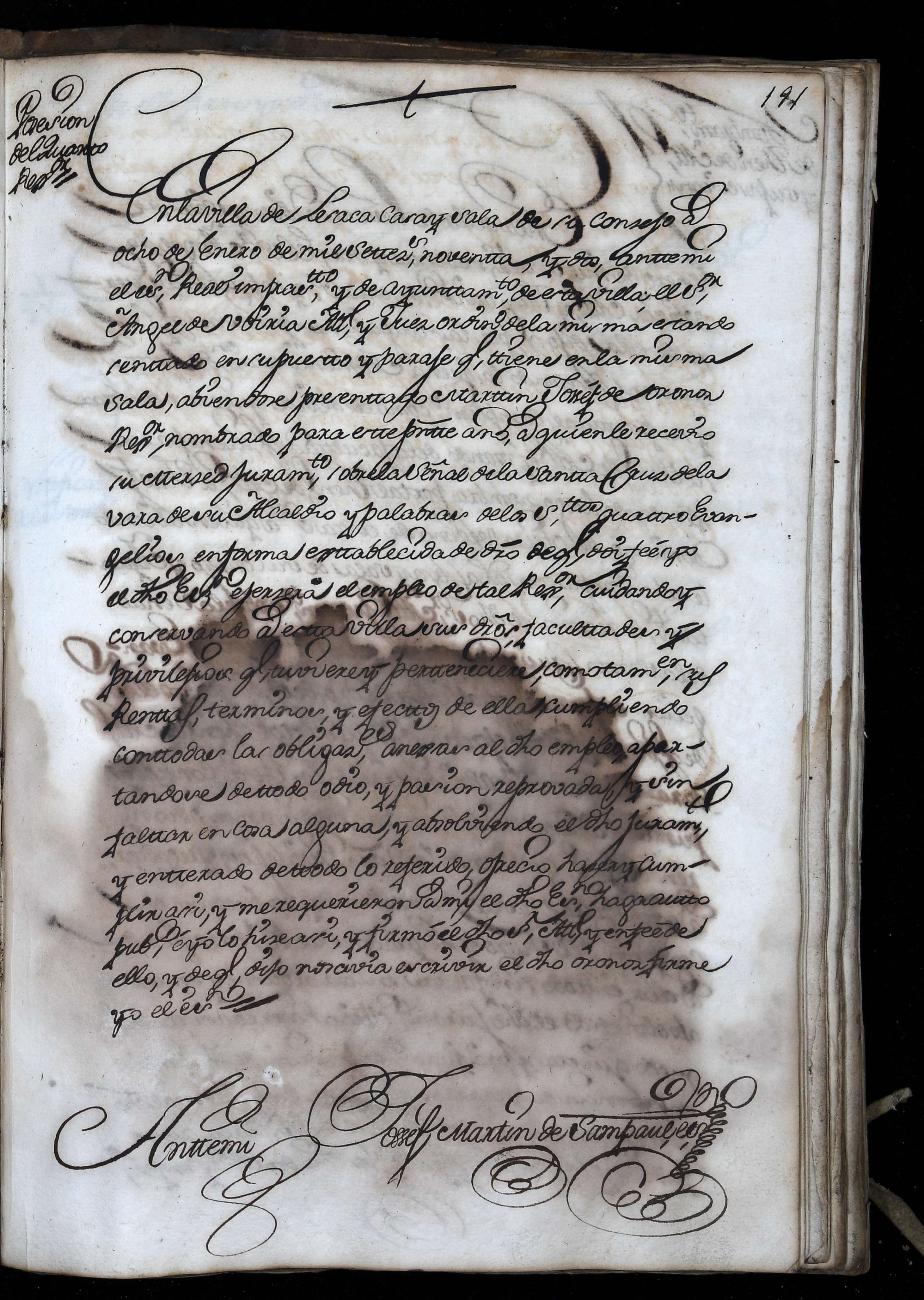 191
Posesion
del Quarto
Rexor
En la villa de Lesaca Casa y Sala de su consejo â
ocho de Enero de mil Settezs, noventta, y dto, antte mi
el esno, Realo impraestto, y de ayunttamto, de esta villa, el Sr,
Angel de Vbiria Alle, y Juez ordino, de la misma, estando
senttado en su puestto y paraje qe, tiene en la misma
Sala, abiendose presenttado Marttin Josef de oronoz
Rexor, nombrado para este pntte año, â quien le recevio
su Mersed Juramto, sobre la Señal de la Santta Cruz de la
vara de su Alcaldio y palabras de los Stttos quattro Evan-
gelios en forma esttablecida de dro de qe, doy fee yo
el dho Esno, ejerzerâ el empleo de tal Rexor, cuidando y
conservando â estta Villa sus dros, faculttades y
privilejios qe, tuviere y perteneciere, como tamen, sus
Renttas, terminos, y efectos de ella cumpliendo
con ttodas las obligazes, anexas al dho empleo, apar-
tandose de ttodo odio, y pasion reprovada, y sin
falttar en Cosa alguna, y absolviendo el dho Juramto,
y entterado de ttodo lo referido, ofrecio hazer y Cum-
plir asi, y me requerieron â mi el dho Esno, haga autto
pubco, e yo lo hize asi, y firmó el dho Sr, Alle, y en fee de
ello, y de qe, dijo no savia escrivir el dho oronoz firme
yo el esno
Antte mi Josef Martin de Sampaul, esno